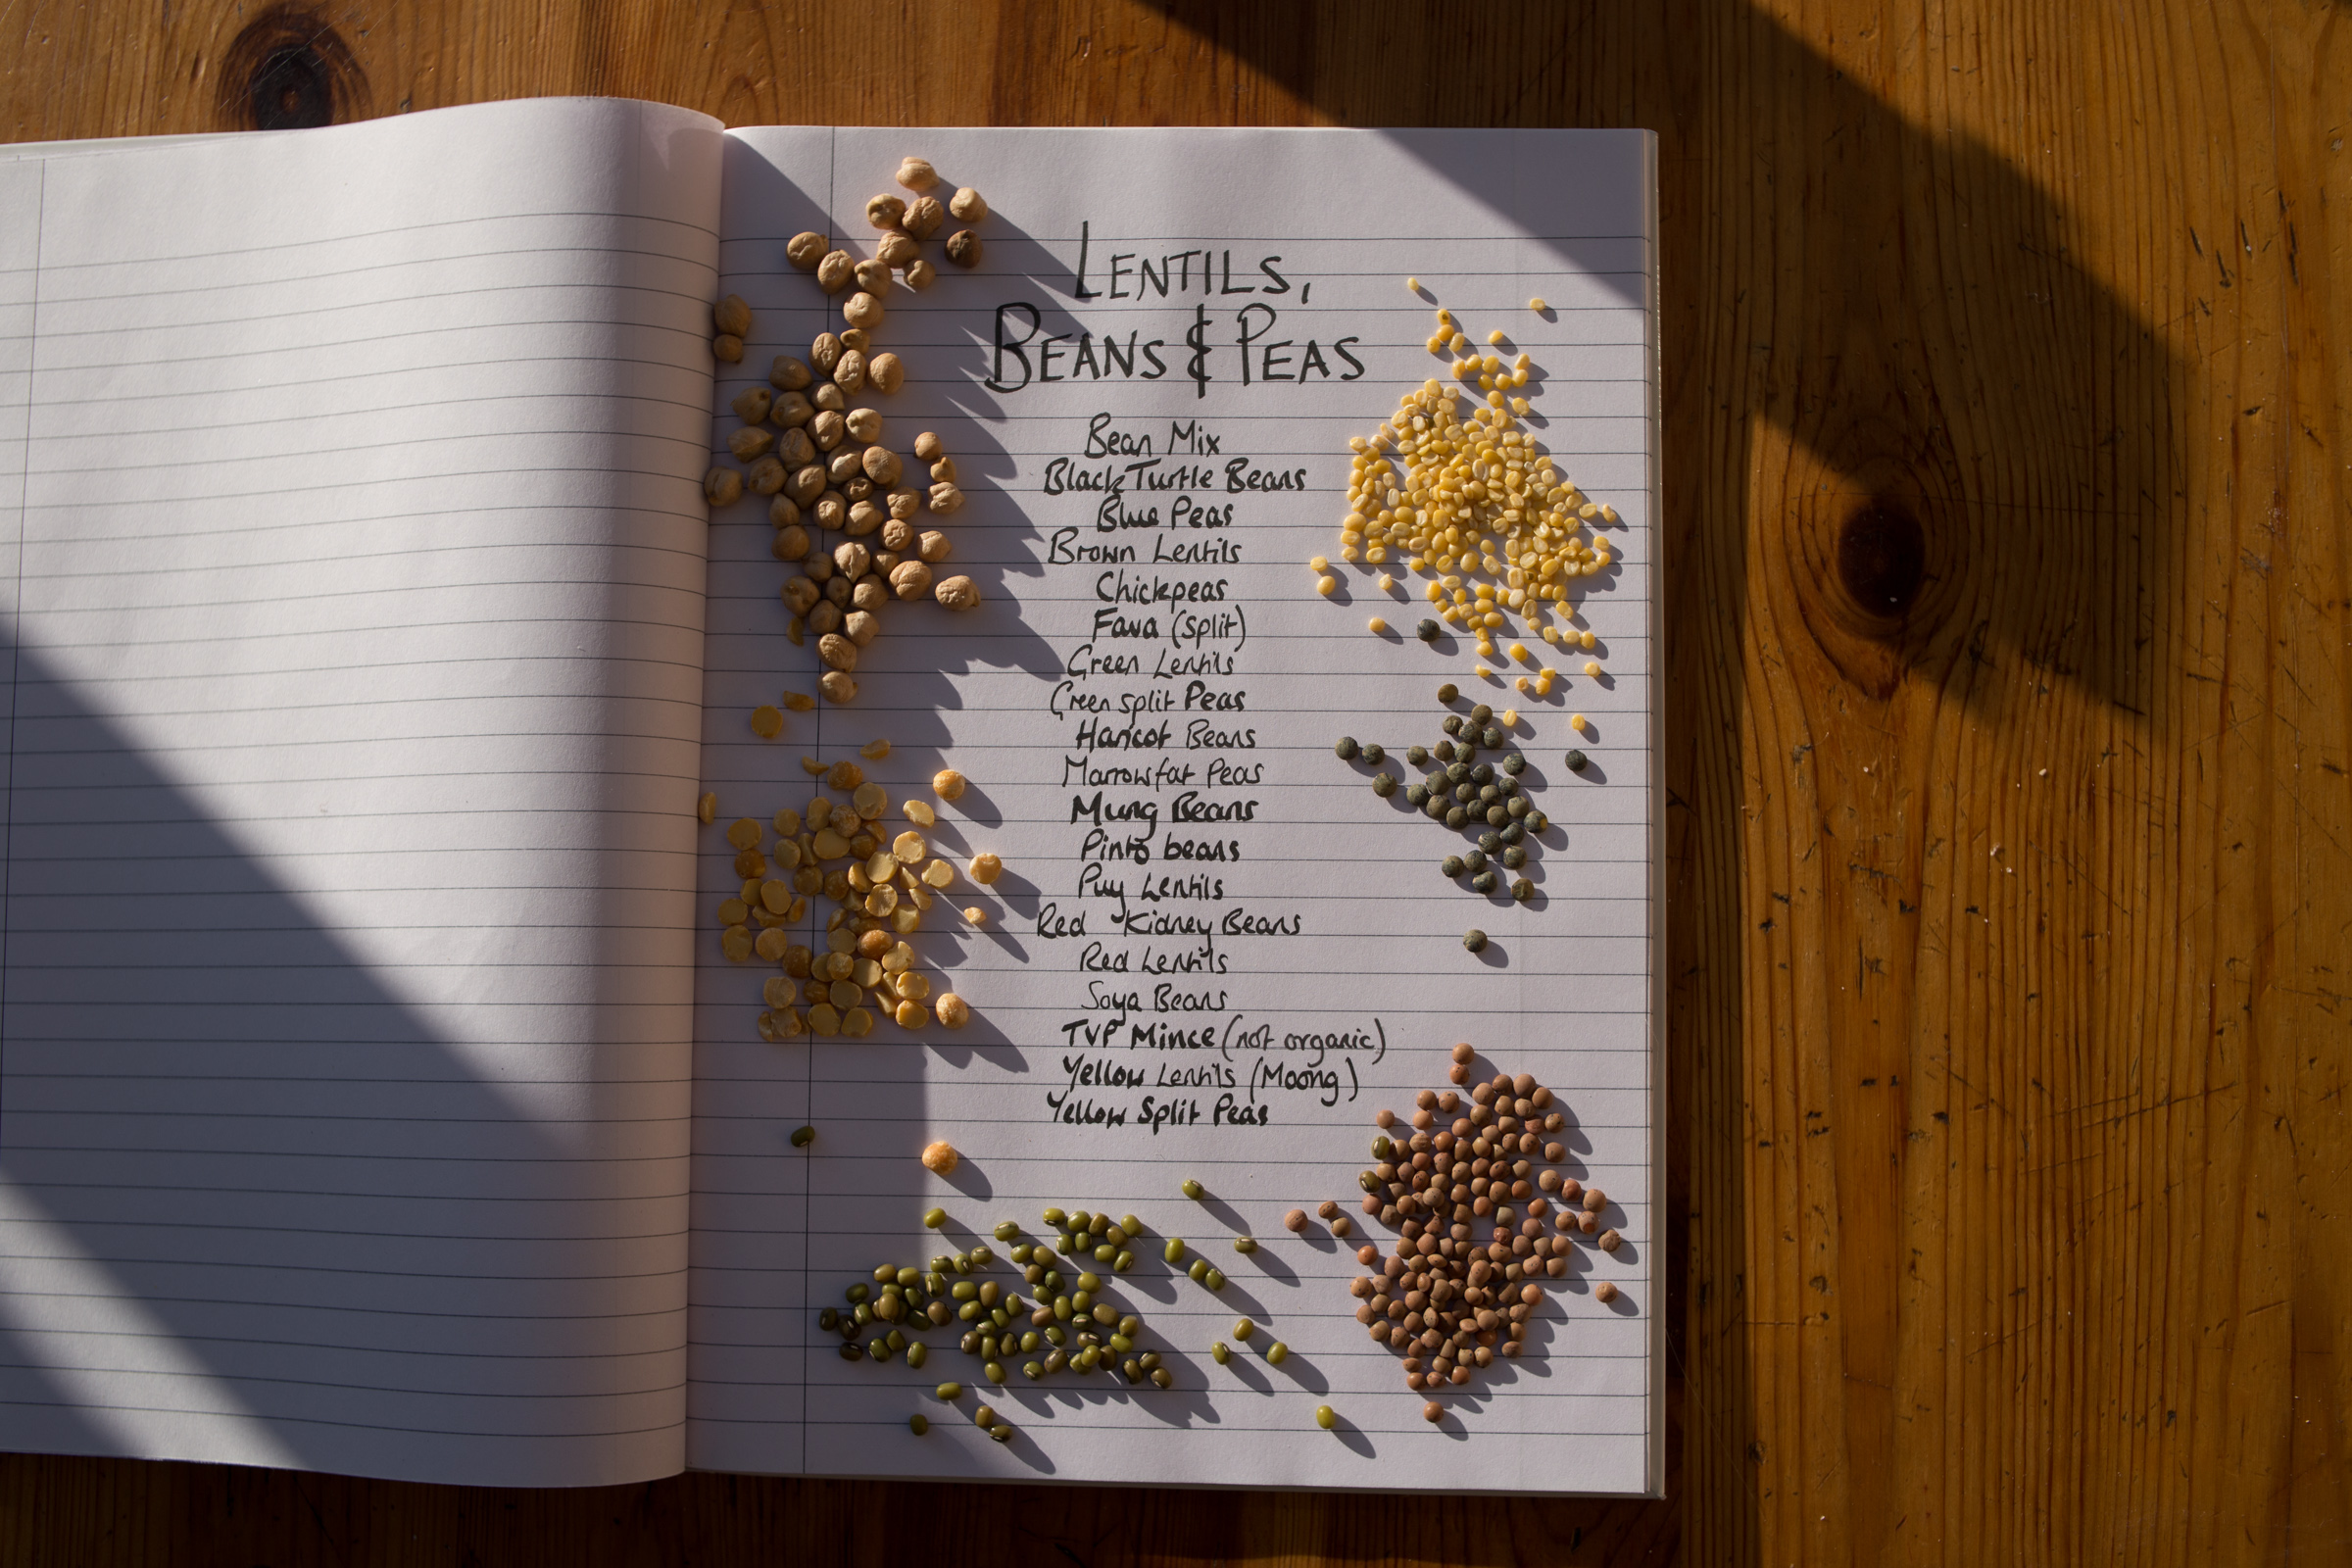 LENTILS,
BEANS & PEAS
Bean Mix
Black Turtle Beans
Blue Peas
Brown Lentils
Chickpeas
Fava (split)
Green Lentils
Green split Peas
Haricot Beans
Marrowfat Peas
Mung Beans
Pinto beans
Puy Lentils
Red Kidney Beans
Red Lentils
Soya Beans
TVP Mince (not organic)
Yellow Lentils (Moong)
Yellow Split Peas